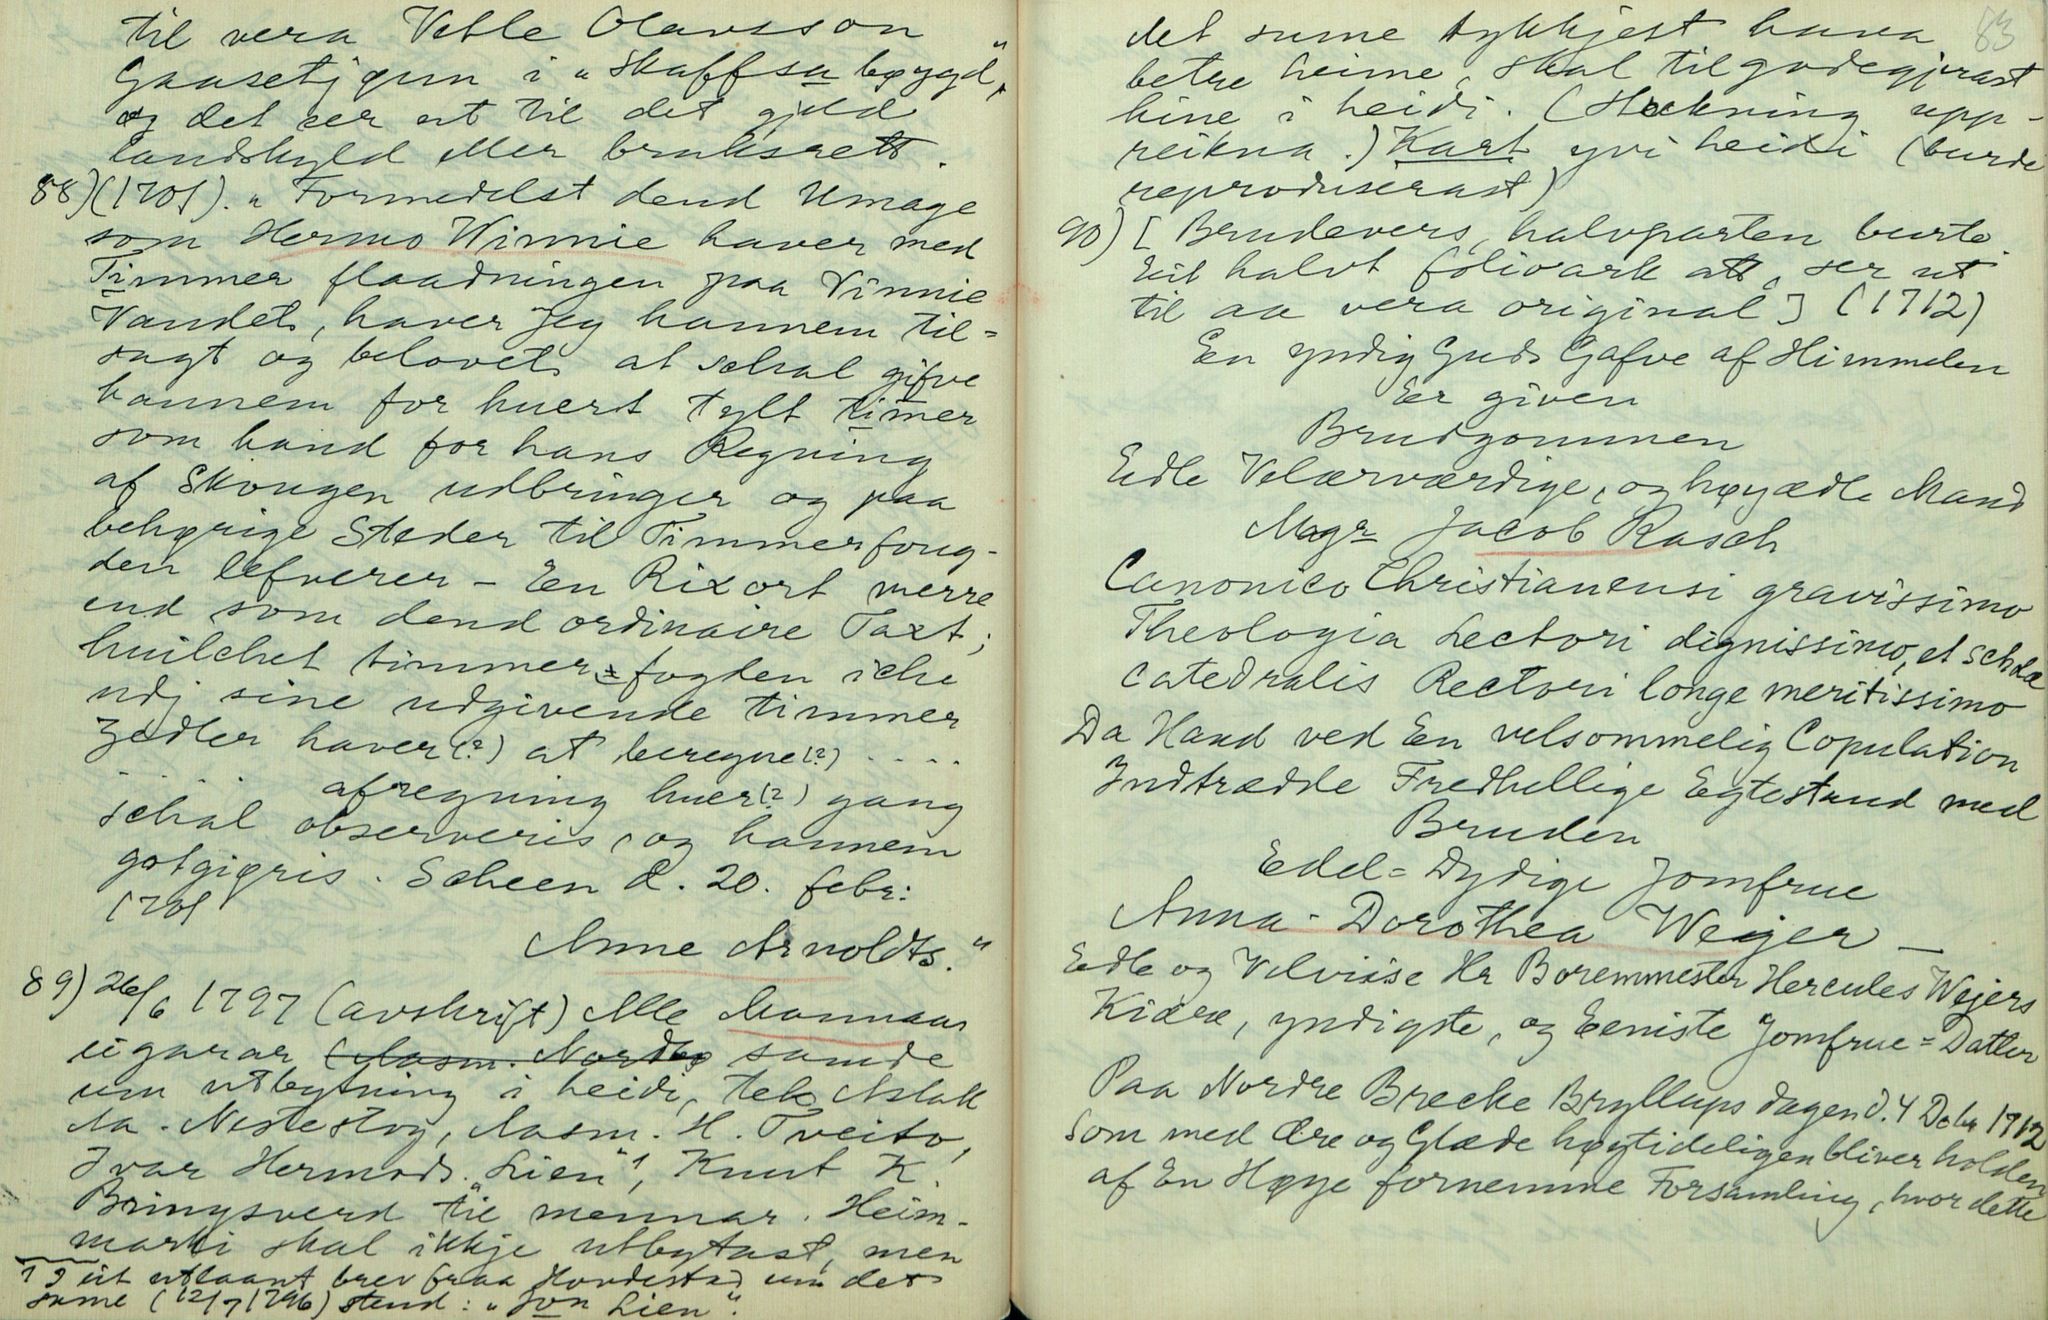 til vera Vetle Olavsson
Gaasetjønn i "Skaffsa bøygd",
og det ser ut til det gjeld
landskyld eller bruksrett.
88) (1701). "Formedelst dend Umage
som Hermo Winnie haver med
Timmer flaadningen paa Vinnie
Vandet, haver Jeg hannem til=
sagt og belovet at schal gifve
hannem for huert tylt timer
som hand for hans Regning
af Skougen udbringer og paa
behørige Steder til Timmerfoug-
den lefverer - En Rixort merre
end som dend ordinaire Taxt;
huilchet timmer=fogden iche
udj sine udgivende timmer
Zedler haver(?) at beregne(?) .....
afregning huer(?) gang
schal observeris, og hannem
gotgiøris. Scheen d. 20. febr:
1701
Anne Arnoldts."
89) 26/6 1797 (avskrift) Alle Mannaas
eigarar (Aasm. Nordbø samde
um utbytning i heidi, tek Aslak
Aa. Nestestog, Aasm. H. Tveito,
Ivar Hermods. "Lien"1, Knut K.
Bringsverd til mennar. Heim-
marki skal ikkje utbytast, men
1 I eit utlaant brev fraa Hovdestad um det
sume (12/7 1796) stend: "Jon Lien".
83
det sume tykkjest hava
betre heime, skal tilgodegjerast
hine i heidi. (Stekning upp-
reikna.) Kart yvi heidi (burde
reproduserast)
90) [Brudevers, halvparten burte.
Eit halvt folioark att, ser ut
til aa vera original] (1712)
En yndig Guds Gafve af Himmelen
Er given
Brudgommen
Edle Velærværdige, og høyædle Mand
Magr Jacob Rasch
Canonico Christianensi gravissimo
Theologia Lectori dignissimo, et scholæ
catedralis Rectori longe meritissimo
Da Hand ved En velsommelig Copulation
Indtrædde Fredhellige Egtestand med
Bruden
Edel=Dydige Jomfrue
Anna-Dorothea Weyer -
Edle og Velviise Hr Boremmester Hercules Wejers
Kiære, yndigste, og Eeniste Jomfrue=Datter
Paa Nordre Brecke Bryllups dagen d. 4 Dcbr 1712
Som med Ære og Glæde høytideligen bliver holden
af En Høye fornemme Forsamling, hvor dette